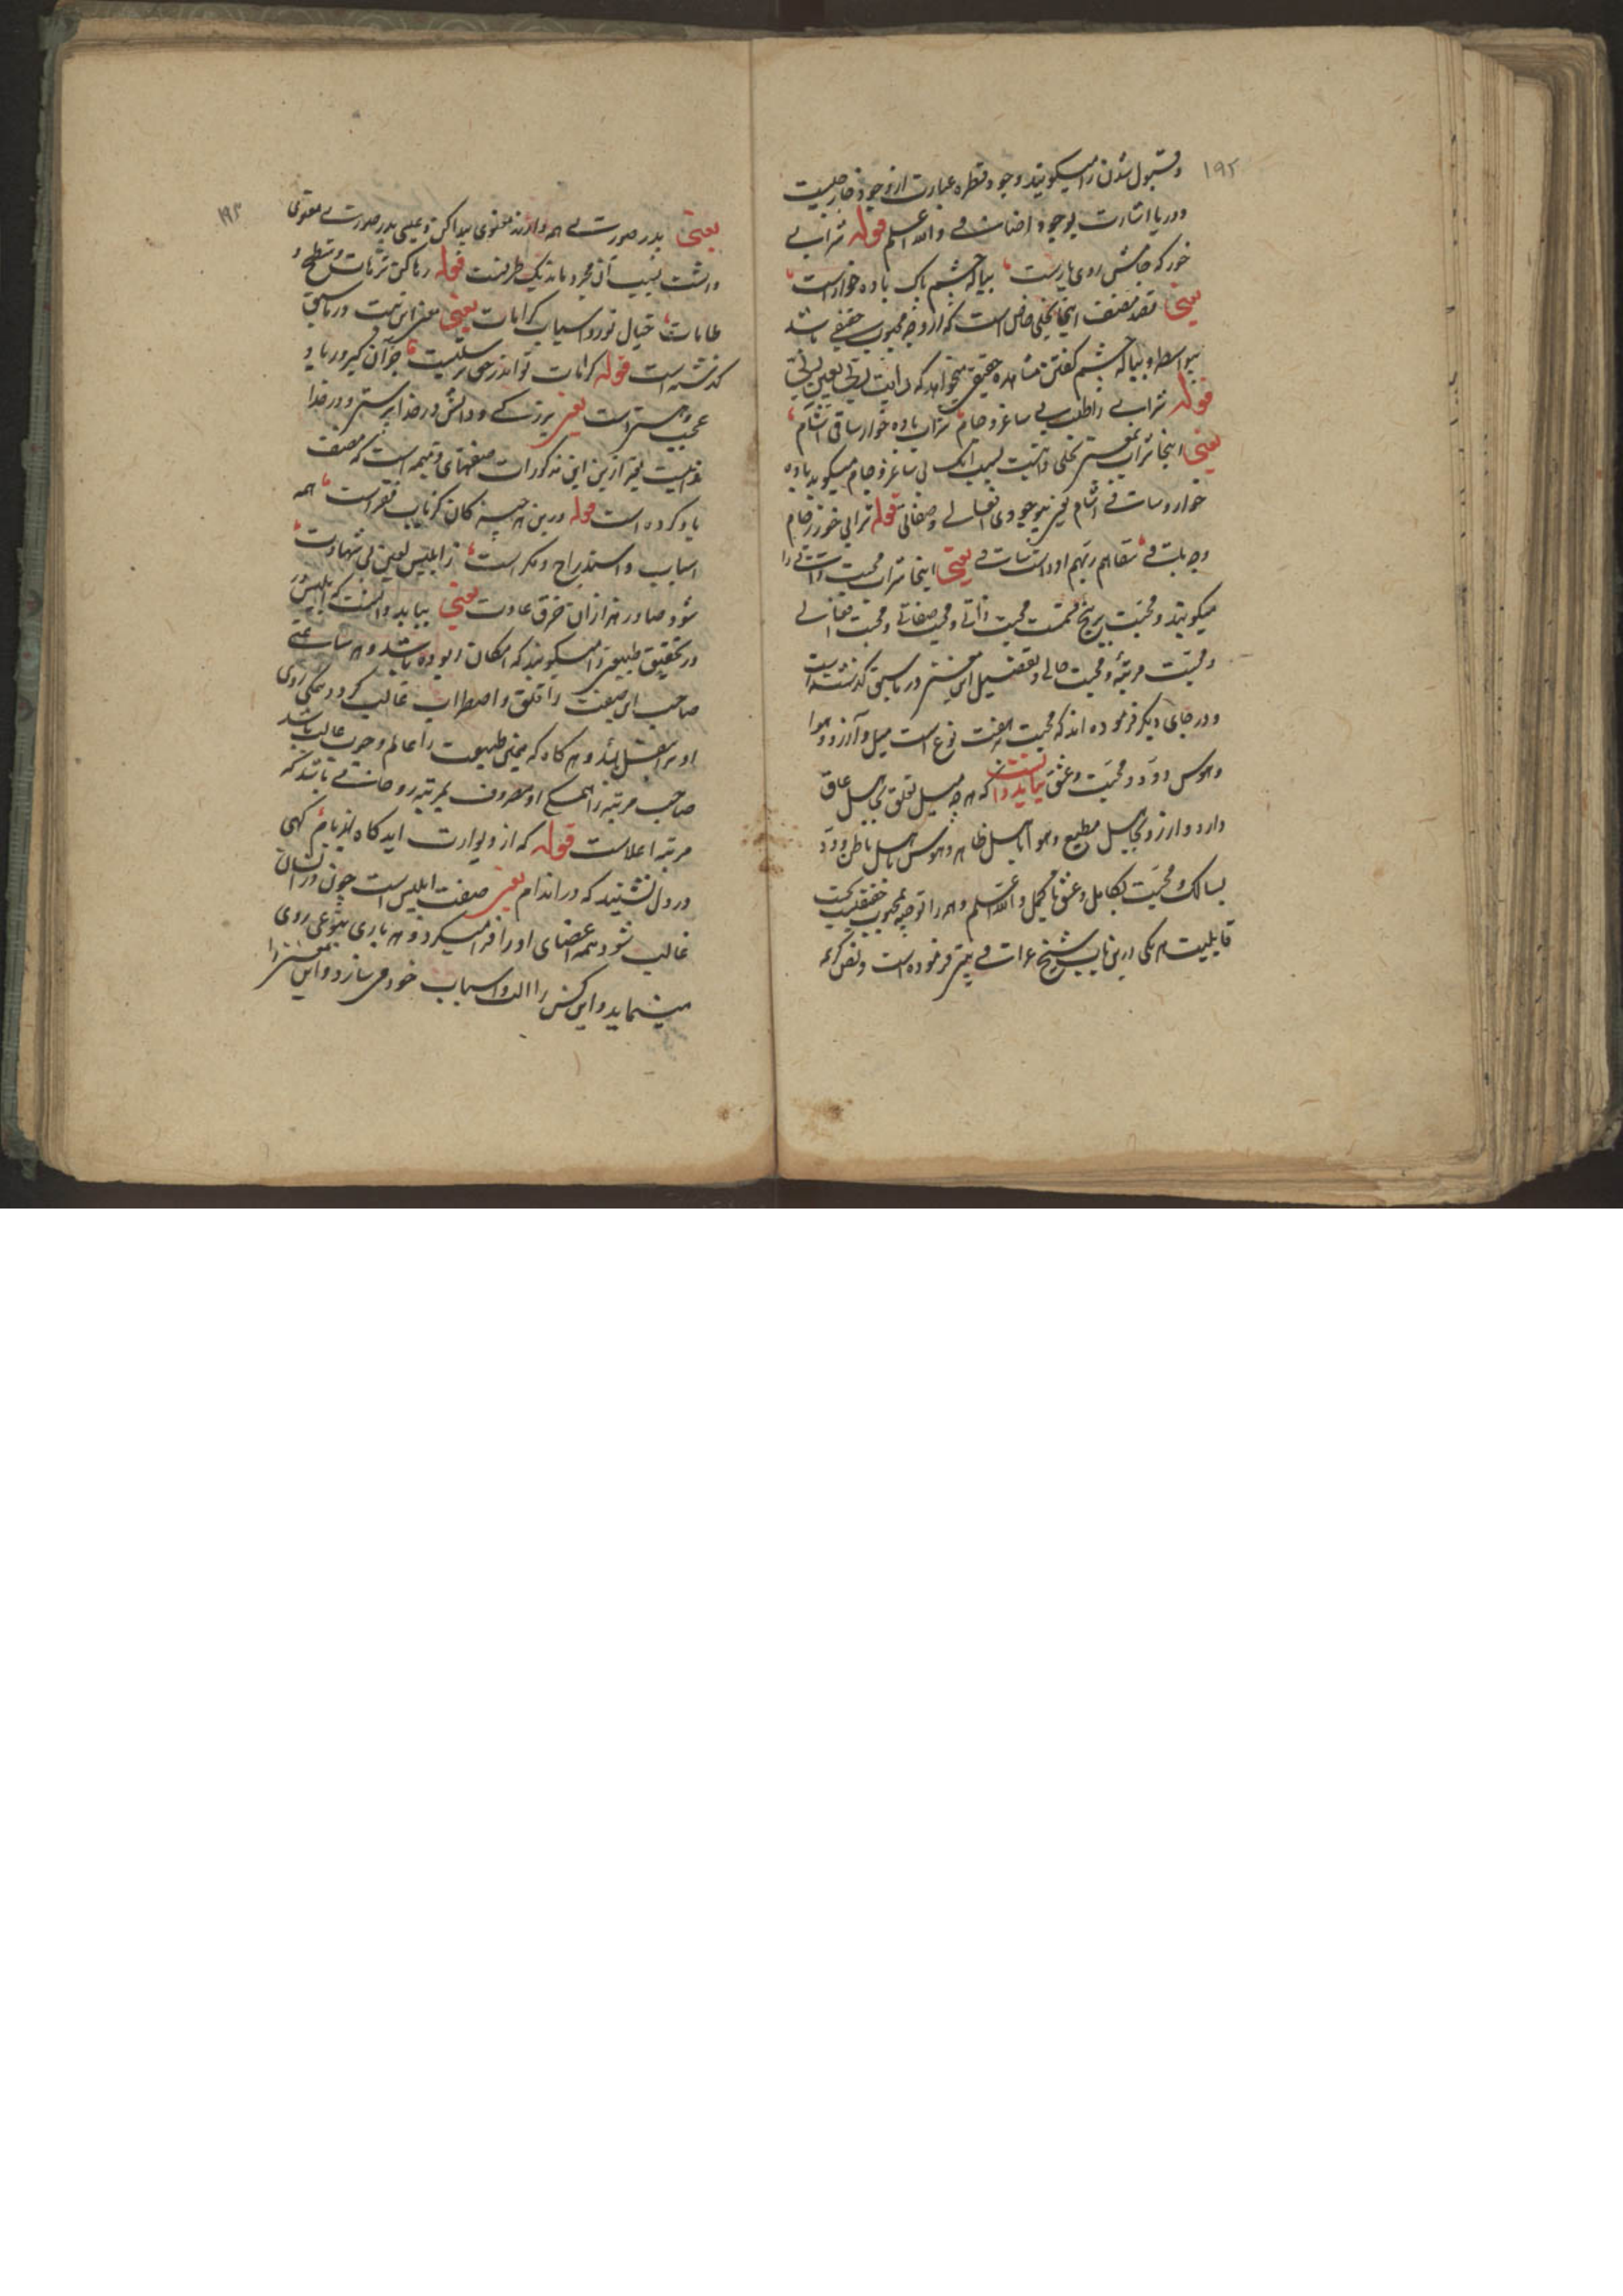 ۱۹۲
و قبول شدن را میگویند و جود قطره عبارت از وجود خارجیست
و دریا اشارت بوجود اضافی و الله اعلم قوله شرابی
خور که جامش روی یارست پیاله چشم پاک باده خوارست
یعنی قصد مصنف اینجا تجلی خاص است که از وجه محبوب حقیقی باشد
بیواسطه و پیاله چشم گفتن مشاهده حقیقی میخواهد که رایت ربی بعین ربی
قوله شرابی را طلب بی ساغر و جام شراب باده خوار ساقی آشام
یعنی اینجا شراب بمعنی تجلی ذاتیست بسبب آنک بی ساغر و جام میگوید باده
خوار و ساقی آشام یعنی بیوجودی افعالی و صفاتی قوله شرابی خور ز جام
وجه باقی سقاهم ربهم او راست ساقی یعنی اینجا شراب محبت ذاتی را
میگویند و محبت بر پنج قسمت محبت ذاتی و محبت صفاتی و محبت افعالی
و محبت مرتبهٔ و محبت حالی و تفصیل این معنی در ما سبق گذشته است
و در جای دیگر فرموده اند که محبت هفت نوع است میل و آرزو و هوا
و هوس و ود و محبت و عشق بباید دانست که هر چه میل تعلق باهل عاق
دارد و ارزو باهل مطیع و هوا باهل ظاهر و هوس باهل باطن و ود
بسالک و محبت بکامل و عشق بمکمل و الله اعلم و هر را توجه بمحبوب حقیقیست بحسب
قابلیت هر یکی درین باب شیخ عراقی بیتی فرموده است و نص کرمه
۱۹۳
یعنی پدر صورتی همه دارند معنوی پیدا کن و عیسی پدر صورتی معنوی
داشت بسبب آن مجرد ماند یک طرفست قوله رها کن ترهات و شطح و
طامات خیال نور و اسباب کرامات یعنی معنی این بیت در ما سبق
گذشته است قوله کرامات تو اندر حق پرستیست جز آن کبر و ریا و
عجب و هستی است یعنی بزرگی و دانش در خدا پرستی و در خدا
دانیست بغیر ازین این مذکورات صفتهای ذمیمه است که مصنف
یاد کرده است قوله درین هر چیز کان نز باب فقر است همه
اسباب و استدراج و مکر است ز ابلیس لعین بی شهادت
شود صادر هزاران خرق عادت یعنی بباید دانست که ابلیس در
در تحقیق طبیعی را میگویند که امکان ربوده باشد و هر ساعتی
صاحب این صفت را قلق و اضطراب غالب گردد و همگی روی
او بر اسفل باشد و هر گاه که یعنی طبیعت را عالم وجوب غالب باشد
صاحب مرتبه را همگی او مصروف بمرتبه روحانی باشد که
مرتبه اعلاست قوله که از دیوارت اید گاه از بام گهی
در دل نشیند که در اندام یعنی صفت ابلیس است چون در انسان
غالب شود همه اعضای او را فرا میگیرد و هر باری بنوعی روی
مینماید و این کس را الت و اسباب خود می سازد و این معنی را